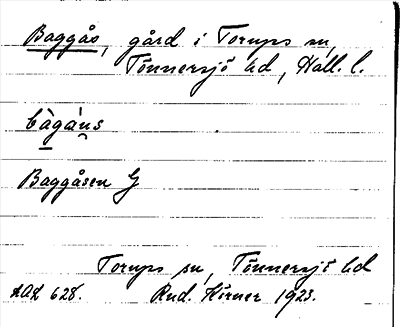 Baggås, gård i Torups sn,
Tönnersjö hd, Hall. l.
bàgáns
Baggåsen G
Torups sn, Tönnersjö hd
AAL 628. Rud. Körner 1923.